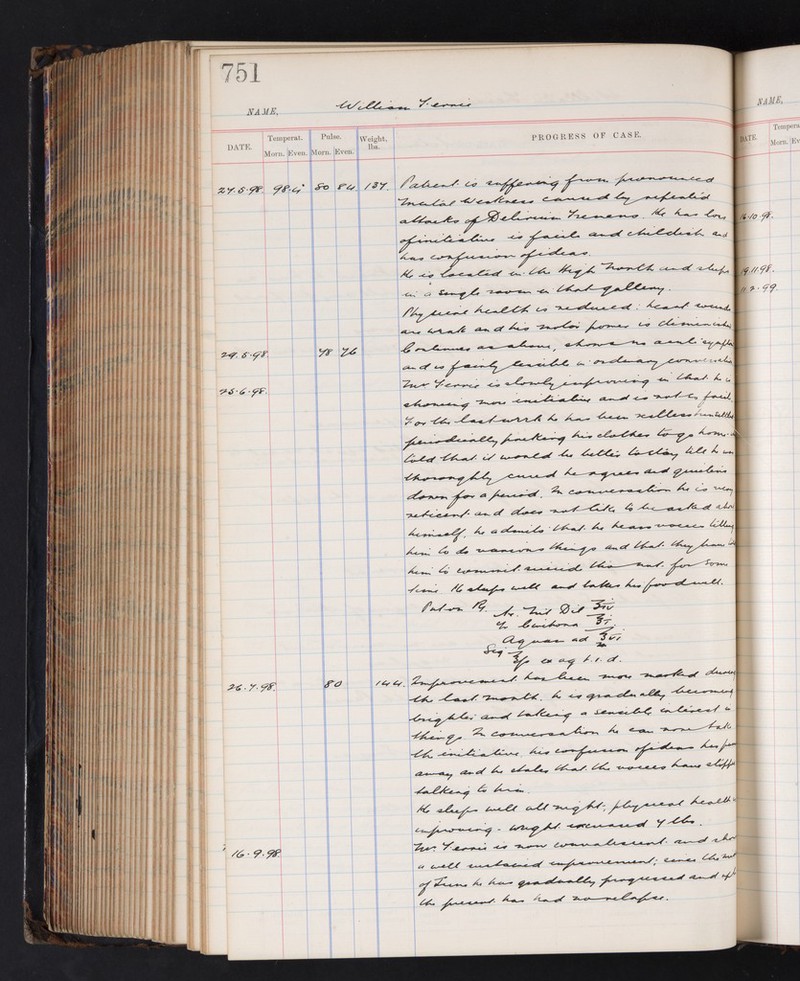 751
NAME, William Fernie
DATE. Temperat. Morn. Even. Pulse. Morn. Even. Weight, lbs. PROGRESS OF CASE.
27.5.98 98.4 80 84 137 Patient is suffering from pronounced
mental weakness caused by repeated
attacks of Delirium Tremens. He has loss
of initiative is facile and childish and
has confusion of ideas.
He is located in the High North and sleeps
in a single room in that gallery.
Physical health is reduced: heart sounds
are weak and his motor power is diminished
29.5.98 78 76 Continues as above, shows no acute
and is fairly sensible in ordinary
25.6.98. Mr is slowly improving in that he is
showing more initiative and is not so facile
For the last week he has been restless
periodically packing his clothes to go home.
told that it would be better to stay till he
thoroughly cured he agrees and quietens
down for a period. In conversation he is very
reticent and does not like to be asked
himself. he admits that he hears voices telling
him to do various things and that they
him to commit suicide this not for some
time He sleeps well and takes his food well.
Put on R. Dil
Aquam ad
Sig ex aq t.i.d.
26.7.98. 80 144. Improvement has been more marked during
the last month. he is gradually becoming
brighter and taking a sensible interest in
things. In conversation he can now take
the initiative, his confusion of ideas has
away and he states that the voices have
talking to him.
He sleeps well all night; physical health
improving - weight increased 7 lbs.
16.9.98 Mr is now convalescent and
a well sustained improvement; since the
of June he has gradually progressed and
the present has had no relapse.
NAME,
DATE. Tempera Morn. Ev
16.10.98.
19.11.98.
99